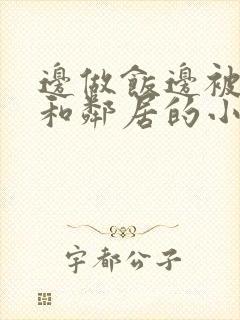 邊做飯邊被
和鄰居的小
宇都公子